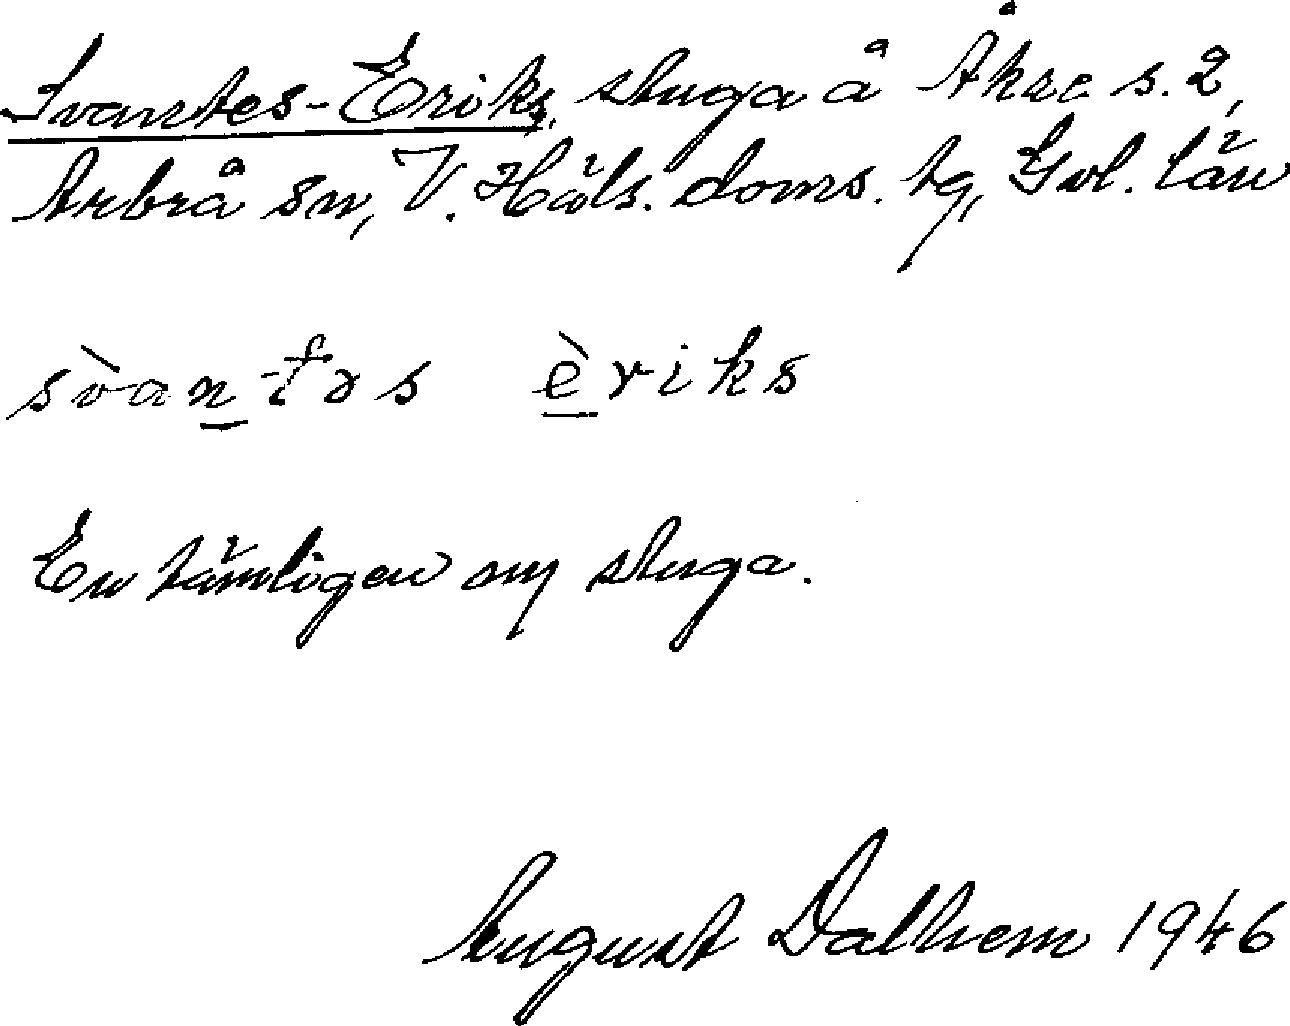 Svantes-Eriks, stuga å Åkre s. 2,
Arbrå sn, V. Häls. doms. tg, Gvl. län
svàntəs èriks
En tämligen ny stuga.
August Dalhem 1946